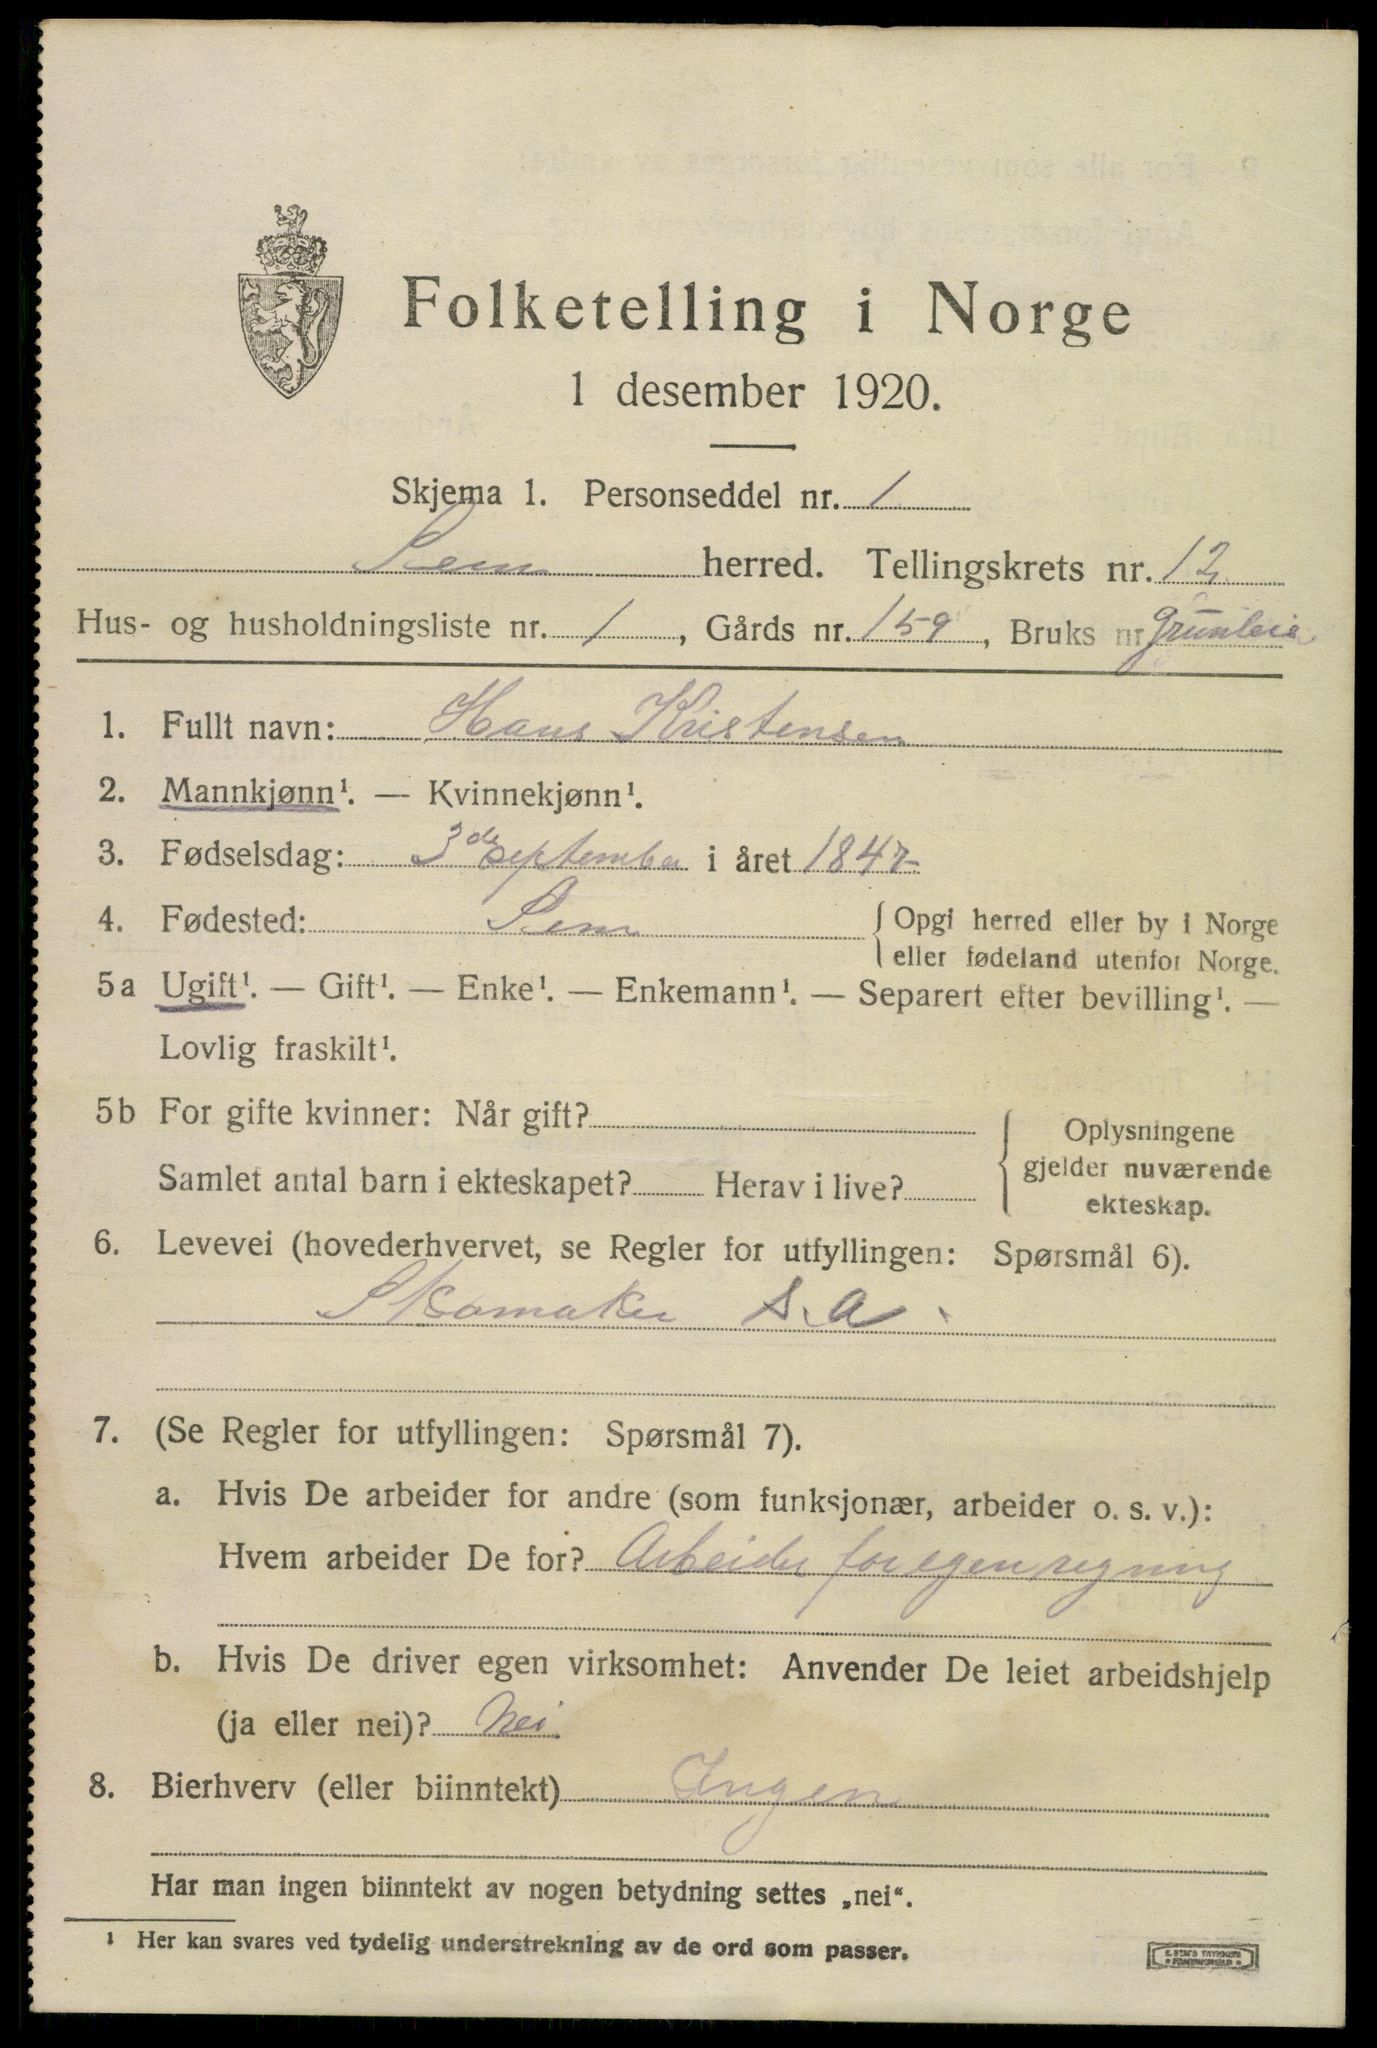 Folketelling i Norge
1 desember 1920.
Skjema 1. Personseddel nr. 1
Sem herred. Tellingskrets nr. 12
Hus- og husholdningsliste nr. 1, Gårds nr. 159, Bruks nr. Grunleie
1. Fullt navn: Hans Kristensen
2. Mannkjønn¹. — Kvinnekjønn¹.
3. Fødselsdag: 3de september i året 1847
4. Fødested: Sem { Opgi herred eller by i Norge
eller fødeland utenfor Norge.
5a Ugift¹. — Gift¹. — Enke¹. — Enkemann¹. — Separert efter bevilling¹. —
Lovlig fraskilt¹.
5b For gifte kvinner: Når gift?
Samlet antal barn i ekteskapet? Herav i live?
{ Oplysningene
gjelder nuværende
ekteskap.
6. Levevei (hovederhvervet, se Regler for utfyllingen: Spørsmål 6).
Skomaker S. A.
7. (Se Regler for utfyllingen: Spørsmål 7).
a. Hvis De arbeider for andre (som funksjonær, arbeider o. s. v.):
Hvem arbeider De for? Arbeider for egen regning
b. Hvis De driver egen virksomhet: Anvender De leiet arbeidshjelp
(ja eller nei)? Nei.
8. Bierhverv (eller biinntekt) Ingen
Har man ingen biinntekt av nogen betydning settes „nei".
¹ Her kan svares ved tydelig understrekning av de ord som passer.